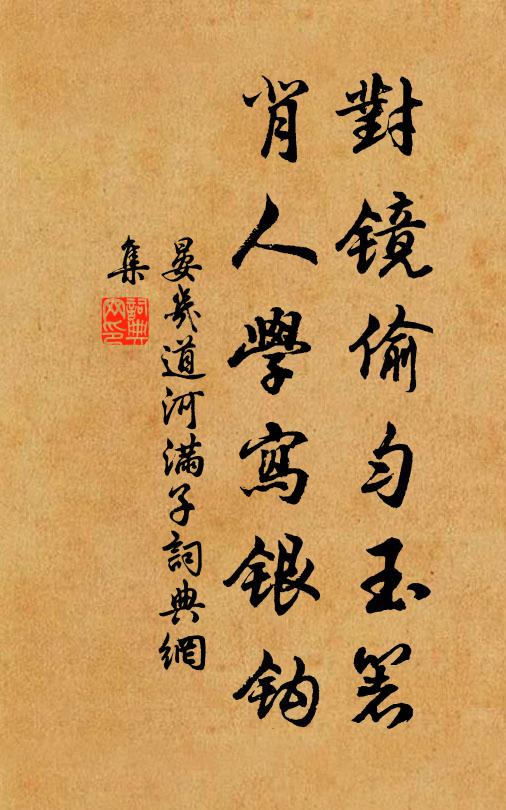 對鏡偷勻玉箸
背人學寫銀鈎
晏幾道河滿子詞典網
集
詞典